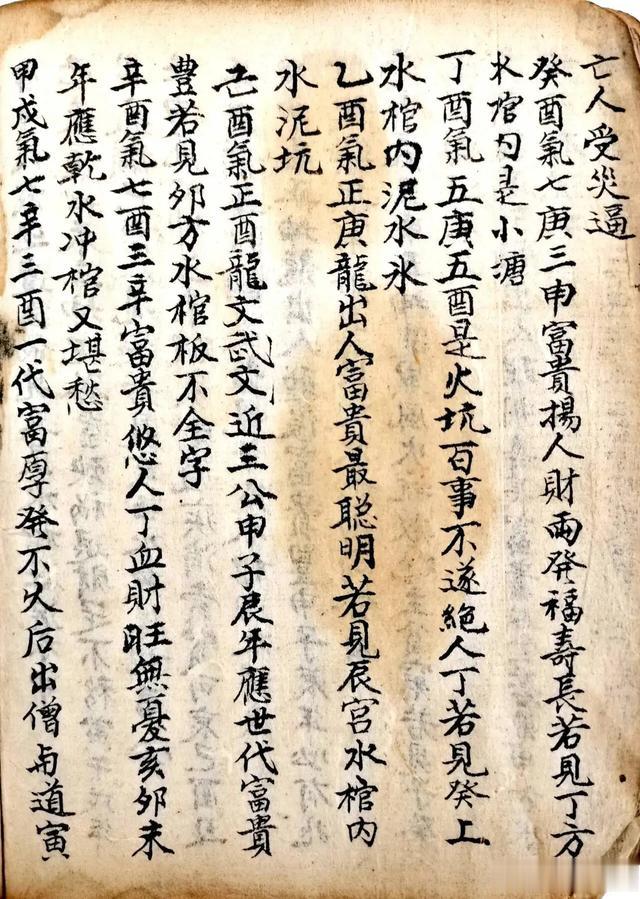 亡人受災逼
癸酉氣七庚三申富貴揚人財兩發福壽長若見丁方
水棺内是小塘
丁酉氣五庚五酉是火坑百事不遂絕人丁若見癸上
水棺内泥水氷
乙酉氣正庚龍出人富貴最聰明若見辰宫水棺内
水泥坑
己酉氣正酉龍文武文近三公申子辰年應世代富貴
豐若見卯方水棺板不全字
辛酉氣七酉三辛富貴悠人丁血財旺無憂亥卯未
年應乾水冲棺又堪愁
甲戌氣七辛三酉一代富厚發不久后出僧与道寅